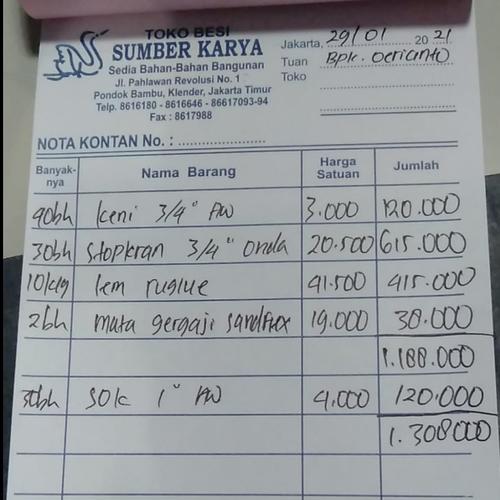 TOKO BESI
SUMBER KARYA
Sedia Bahan-Bahan Bangunan
Jl. Pahlawan Revolusi No. 1
Pondok Bambu, Klender, Jakarta Timur
Telp. 8616180 - 8616646 - 86617093-94
Fax : 8617988
Jakarta, 29/01 20 21
Tuan Bpk. Oerianto
Toko
NOTA KONTAN No. :
Banyak-nya Nama Barang Harga Satuan Jumlah
40bh keni 3/4" AW 3.000 120.000
30bh stopkran 3/4" onda 20.500 615.000
10klg lem ruglue 41.500 415.000
2bh mata gergaji sandflex 19.000 38.000
1.188.000
30bh sok 1" AW 4.000 120.000
1.308000